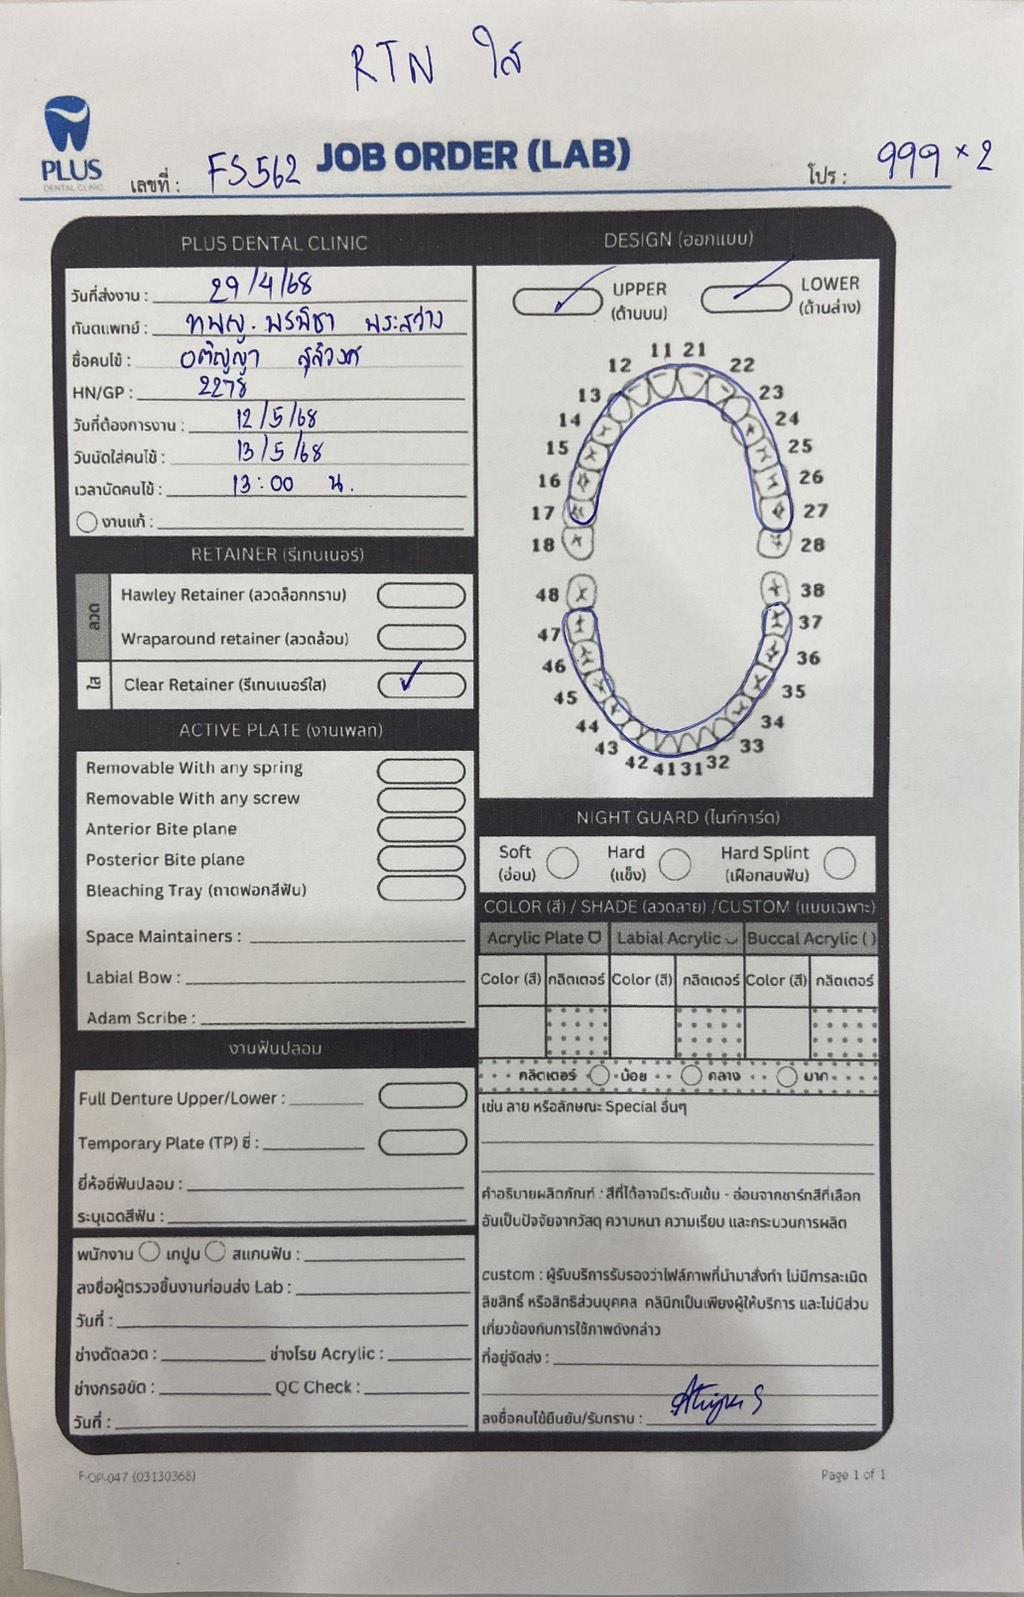 RTN ใส
PLUS
DENTAL CLINIC
เลขที่ : FS562
JOB ORDER (LAB)
โปร : 999 x 2
PLUS DENTAL CLINIC
วันที่ส่งงาน : 29/4/68
ทันตแพทย์ : ทพญ. พรพิชา พระสว่าง
ชื่อคนไข้ : อติญญา
HN/GP : 2278
วันที่ต้องการงาน : 12/5/68
วันนัดใส่คนไข้ : 13/5/68
เวลานัดคนไข้ : 13:00 น.
งานแก้ :
RETAINER (รีเทนเนอร์)
ลวด
Hawley Retainer (ลวดล็อกกราม)
Wraparound retainer (ลวดล้อม)
ใส
Clear Retainer (รีเทนเนอร์ใส)
ACTIVE PLATE (งานเพลท)
Removable With any spring
Removable With any screw
Anterior Bite plane
Posterior Bite plane
Bleaching Tray (ถาดฟอกสีฟัน)
Space Maintainers :
Labial Bow :
Adam Scribe :
งานฟันปลอม
Full Denture Upper/Lower :
Temporary Plate (TP) ซี่ :
ยี่ห้อซี่ฟันปลอม :
ระบุเฉดสีฟัน :
พนักงาน เทปูน สแกนฟัน :
ลงชื่อผู้ตรวจชิ้นงานก่อนส่ง Lab :
วันที่ :
ช่างดัดลวด : ช่างโรย Acrylic :
ช่างกรอขัด : QC Check :
วันที่ :
DESIGN (ออกแบบ)
UPPER
(ด้านบน)
LOWER
(ด้านล่าง)
11 21
12 22
13 23
14 24
15 25
16 26
17 27
18 28
48 38
47 37
46 36
45 35
44 34
43 33
42 41 31 32
NIGHT GUARD (ไนท์การ์ด)
Soft
(อ่อน)
Hard
(แข็ง)
Hard Splint
(เฝือกสบฟัน)
COLOR (สี) / SHADE (ลวดลาย) /CUSTOM (แบบเฉพาะ)
Acrylic Plate Labial Acrylic Buccal Acrylic ( )
Color (สี) กลิตเตอร์ Color (สี) กลิตเตอร์ Color (สี) กลิตเตอร์
กลิตเตอร์ น้อย กลาง มาก
เช่น ลาย หรือลักษณะ Special อื่นๆ
คำอธิบายผลิตภัณฑ์ : สีที่ได้อาจมีระดับเข้ม - อ่อนจากชาร์ทสีที่เลือก
อันเป็นปัจจัยจากวัสดุ ความหนา ความเรียบ และกระบวนการผลิต
custom : ผู้รับบริการรับรองว่าไฟล์ภาพที่นำมาสั่งทำ ไม่มีการละเมิด
ลิขสิทธิ์ หรือสิทธิส่วนบุคคล คลินิกเป็นเพียงผู้ให้บริการ และไม่มีส่วน
เกี่ยวข้องกับการใช้ภาพดังกล่าว
ที่อยู่จัดส่ง :
ลงชื่อคนไข้ยืนยัน/รับทราบ :
F-OP-047 (03130368)
Page 1 of 1